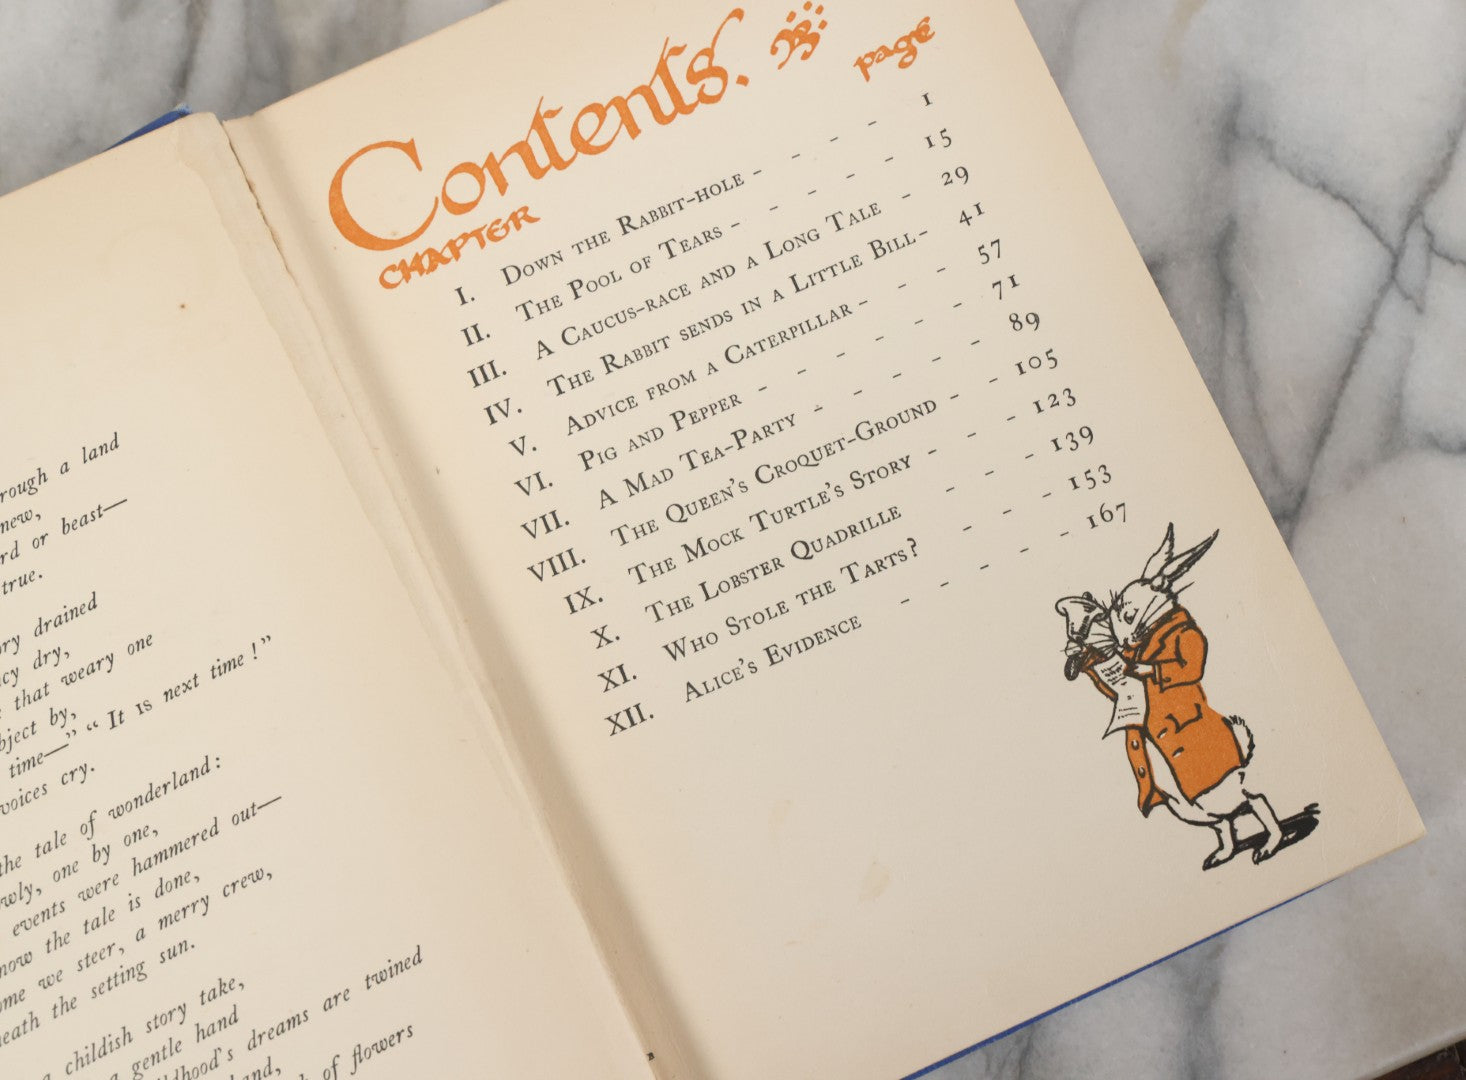 rough a land
new,
rd or beast—
true.
ory drained
cy dry,
that weary one
bject by,
time—" "It is next time!"
voices cry.
the tale of wonderland:
wly, one by one,
events were hammered out—
now the tale is done,
ome we steer, a merry crew,
neath the setting sun.
a childish story take,
a gentle hand
ldhood's dreams are twined
and,
of flowers
Contents.
CHAPTER page
I. Down the Rabbit-hole - - - - 1
II. The Pool of Tears - - - - - 15
III. A Caucus-race and a Long Tale - 29
IV. The Rabbit sends in a Little Bill - 41
V. Advice from a Caterpillar - - - 57
VI. Pig and Pepper - - - - - - 71
VII. A Mad Tea-Party - - - - - 89
VIII. The Queen's Croquet-Ground - - 105
IX. The Mock Turtle's Story - - - 123
X. The Lobster Quadrille - - - 139
XI. Who Stole the Tarts? - - - 153
XII. Alice's Evidence - - - - - 167